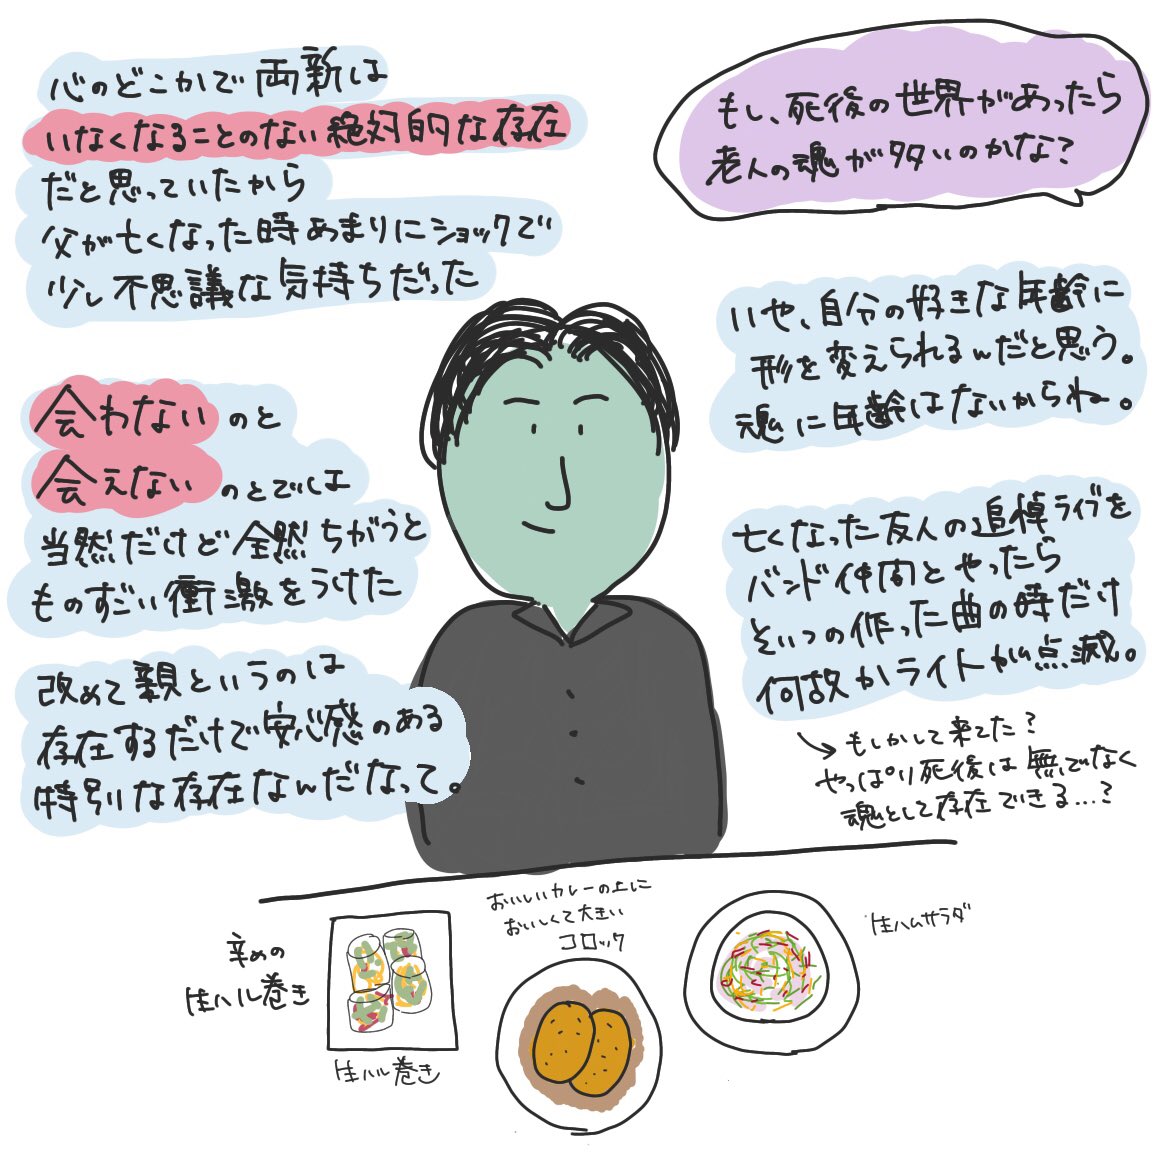 心のどこかで両新は
いなくなることのない絶対的な存在
だと思っていたから
父が亡くなった時あまりにショックで
少し不思議な気持ちだった
会わないのと
会えないのとでは
当然だけど全然ちがうと
ものすごい衝激をうけた
改めて親というのは
存在するだけで安心感のある
特別な存在なんだなって。
もし、死後の世界があったら
老人の魂が多いのかな?
いや、自分の好きな年齢に
形を変えられるんだと思う。
魂に年齢はないからね。
亡くなった友人の追悼ライブを
バンド仲間とやったら
そいつの作った曲の時だけ
何故かライトが点滅。
もしかして来てた?
やっぱり死後は無でなく
魂として存在できる…?
辛めの
生ハル巻き
生ハル巻き
おいしいカレーの上に
おいしくて大きい
コロック
生ハムサラダ